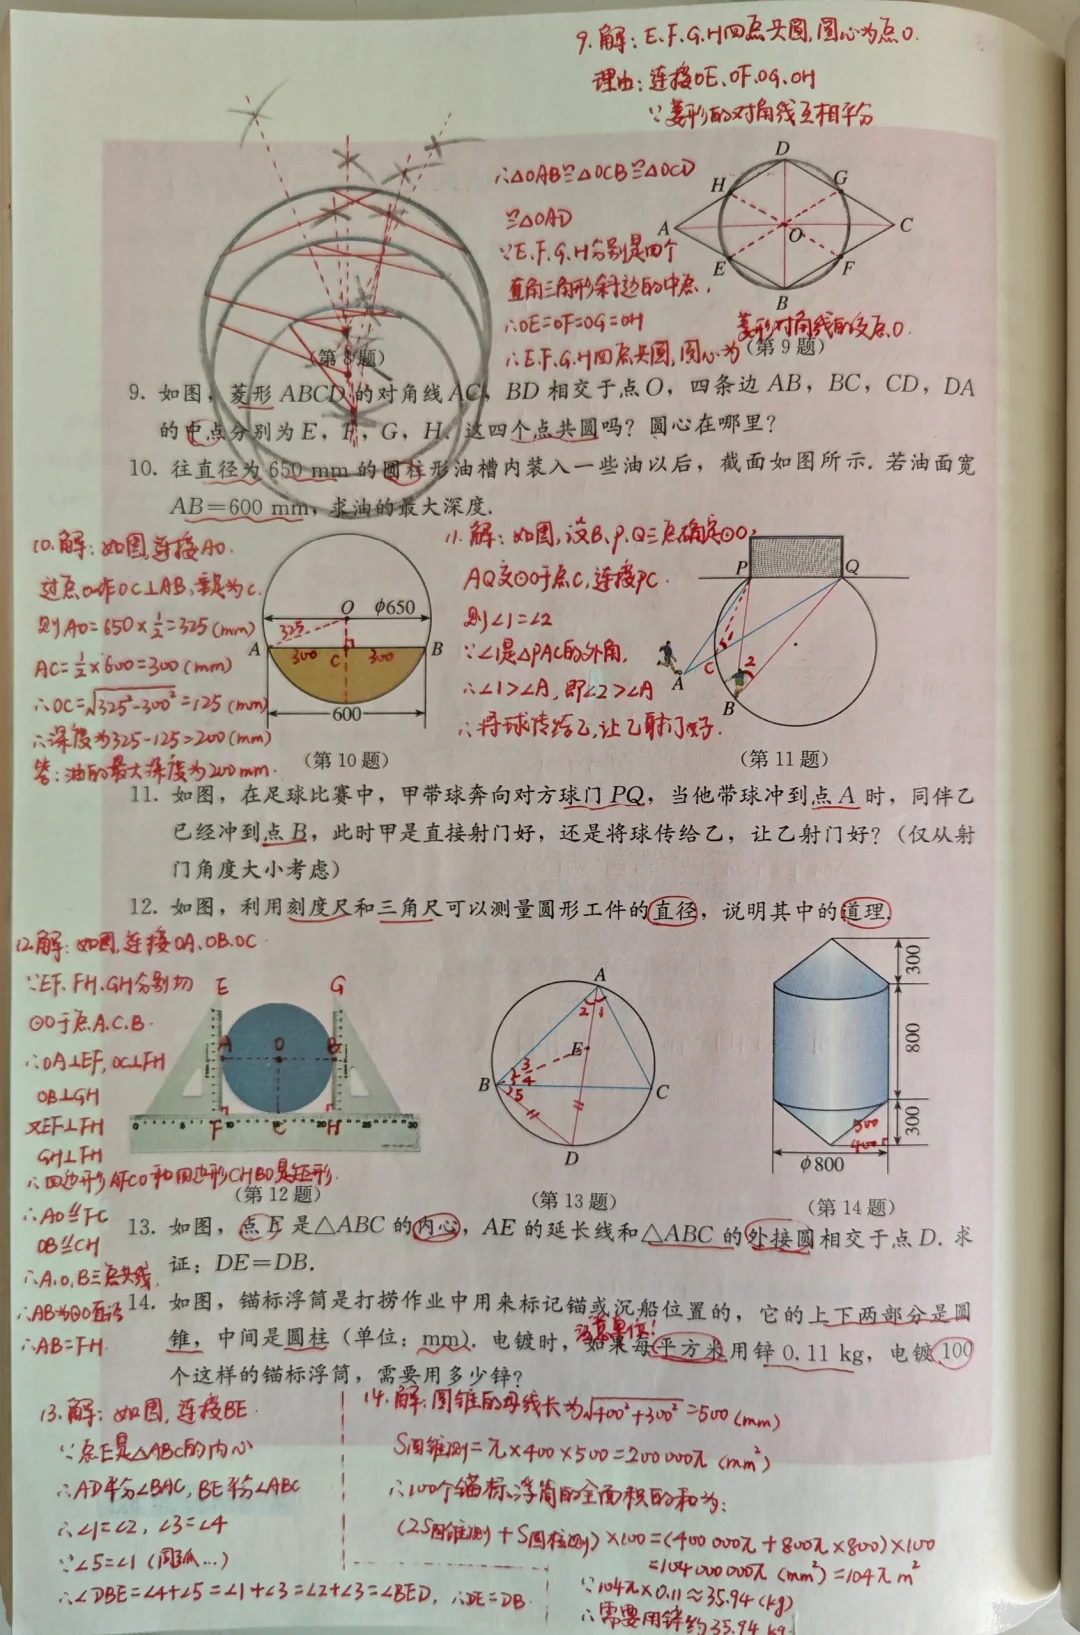 9.解:E.F.G.H四点共圆,圆心为点O.
理由:连接OE、OF、OG、OH
∵菱形的对角线互相平分
∴△OAB≌△OCB≌△OCD
≌△OAD
∵E.F.G.H分别是四个
直角三角形斜边的中点.
∴OE=OF=OG=OH
∴E.F.G.H四点共圆,圆心为
菱形对角线的交点O.
D
H
G
A
O
C
E
F
B
(第8题)
(第9题)
9. 如图,菱形ABCD的对角线AC,BD相交于点O,四条边AB,BC,CD,DA
的中点分别为E,F,G,H.这四个点共圆吗?圆心在哪里?
10. 往直径为650 mm的圆柱形油槽内装入一些油以后,截面如图所示.若油面宽
AB=600 mm,求油的最大深度.
10.解:如图,连接AO.
过点O作OC⊥AB,垂足为C.
则AO=650×1/2=325(mm)
AC=1/2×600=300(mm)
∴OC=√325²-300²=125(mm)
∴深度为325-125=200(mm)
答:油的最大深度为200mm.
O
φ650
325
A
300
C
300
B
600
(第10题)
11.解:如图,设B、P、Q三点确定⊙O,
AQ交⊙O于点C,连接PC.
则∠1=∠2
∵∠1是△PAC的外角,
∴∠1>∠A,即∠2>∠A
∴将球传给乙,让乙射门好.
P
Q
1
C
2
A
B
(第11题)
11. 如图,在足球比赛中,甲带球奔向对方球门PQ,当他带球冲到点A时,同伴乙
已经冲到点B,此时甲是直接射门好,还是将球传给乙,让乙射门好?(仅从射
门角度大小考虑)
12. 如图,利用刻度尺和三角尺可以测量圆形工件的直径,说明其中的道理.
12.解:如图,连接OA、OB、OC
∵EF、FH、GH分别切
⊙O于点A.C.B.
∴OA⊥EF,OC⊥FH
OB⊥GH
又EF⊥FH
GH⊥FH
∴四边形AFCO和四边形CHBO是矩形.
∴AO≌FC
OB≌CH
∴A,O,B三点共线.
∴AB为⊙O直径
∴AB=FH.
E
G
A
O
B
F
C
H
0 5 10 25 30
(第12题)
A
2 1
E
3
4
B
5
C
D
(第13题)
300
800
300
500
400
φ800
(第14题)
13. 如图,点E是△ABC的内心,AE的延长线和△ABC的外接圆相交于点D.求
证:DE=DB.
14. 如图,锚标浮筒是打捞作业中用来标记锚或沉船位置的,它的上下两部分是圆
注意单位!
锥,中间是圆柱(单位:mm).电镀时,如果每平方米用锌0.11 kg,电镀100
个这样的锚标浮筒,需要用多少锌?
13.解:如图,连接BE.
∵点E是△ABC的内心
∴AD平分∠BAC,BE平分∠ABC
∴∠1=∠2,∠3=∠4
∵∠5=∠1(同弧...)
∴∠DBE=∠4+∠5=∠1+∠3=∠2+∠3=∠BED,∴DE=DB.
14.解:圆锥的母线长为√400²+300²=500(mm)
S圆锥侧=π×400×500=200000π(mm²)
∴100个锚标浮筒的全面积的和为:
(2S圆锥侧+S圆柱侧)×100=(400000π+800π×800)×100
=104000000π(mm²)=104πm²
∵104π×0.11≈35.94(kg)
∴需要用锌约35.94kg.